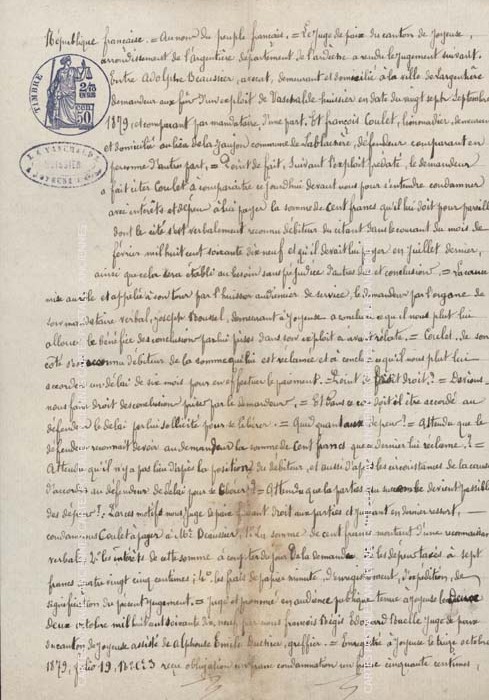 République française. = Au nom du peuple français. = Le juge de paix du canton de Joyeuse,
arrondissement de l'argentière département de l'ardèche a rendu le jugement suivant.
Entre Adolphe Beaussier, avocat, demeurant et domicilié à la ville de Largentière
demandeur aux fins d'un exploit de Vaschalde huissier en date du vingt sept Septembre
TIMBRE
50
1879, et comparant par mandataire, d'une part. Et françois Coulet, demeurant
et domicilié au lieu de la commune de Lablachère, défendeur comparant en
personne d'autre part. = Point de fait. Suivant l'exploit prédaté, le demandeur
a fait citer Coulet à comparaître ce jourd'hui devant nous pour s'entendre condamner
avec intérêts et dépens à lui payer la somme de Cent francs qu'il lui doit pour pareille
dont le cité s'est verbalement reconnu débiteur du citant dans le courant du mois de
février mil huit cent soixante dix neuf et qu'il devait lui payer en juillet dernier,
ainsi que cela sera établi au besoin sans préjudice d'autres dus et conclusion. = La cause
mise au rôle et appelée à son tour par l'huissier audiencier de service, le demandeur par l'organe de
son mandataire verbal, joseph Roussel, demeurant à Joyeuse a conclu à ce qu'il nous plut lui
allouer le bénéfice des conclusions par lui prises dans son exploit = Coulet, de son
côté s'est reconnu débiteur de la somme qu'il lui est réclamée et a conclu à ce qu'il nous plut lui
accorder un délai de six mois pour en effectuer le paiement. = Point de droit. = Devions
nous faire droit des conclusions prises par le demandeur. = Et dans ce cas doit-il être accordé au
défendeur le délai par lui sollicité pour se libérer. = Quid quant aux dépens? = Attendu que le
défendeur reconnait devoir au demandeur la somme de Cent francs que ce dernier lui réclame. =
Attendu qu'il n'y a pas lieu d'après la position du débiteur, et aussi d'après les circonstances de la cause
d'accorder au défendeur de délai pour se libérer. = Attendu que la partie qui succombe devient passible
des dépens. Par ces motifs nous juge de paix faisant droit aux parties et jugeant en dernier ressort,
condamnons Coulet à payer à Mr. Beaussier 1° la somme de cent francs montant d'une reconnaissance
verbale 2° les intérêts de cette somme à compter du jour de la demande 3° les dépens taxés à sept
francs quatre vingt cinq centimes; 4° les frais de papier minute, d'enregistrement, d'expédition, de
signification du présent jugement. = Jugé et prononcé en audience publique tenue à Joyeuse le
deux octobre mil huit cent soixante dix neuf par nous françois Régis Edouard juge de paix
du canton de Joyeuse assisté de Alphonse Emile greffier. = Enregistré à Joyeuse le treize octobre
1879, folio 19, reçu obligation un franc condamnation un franc cinquante centimes,